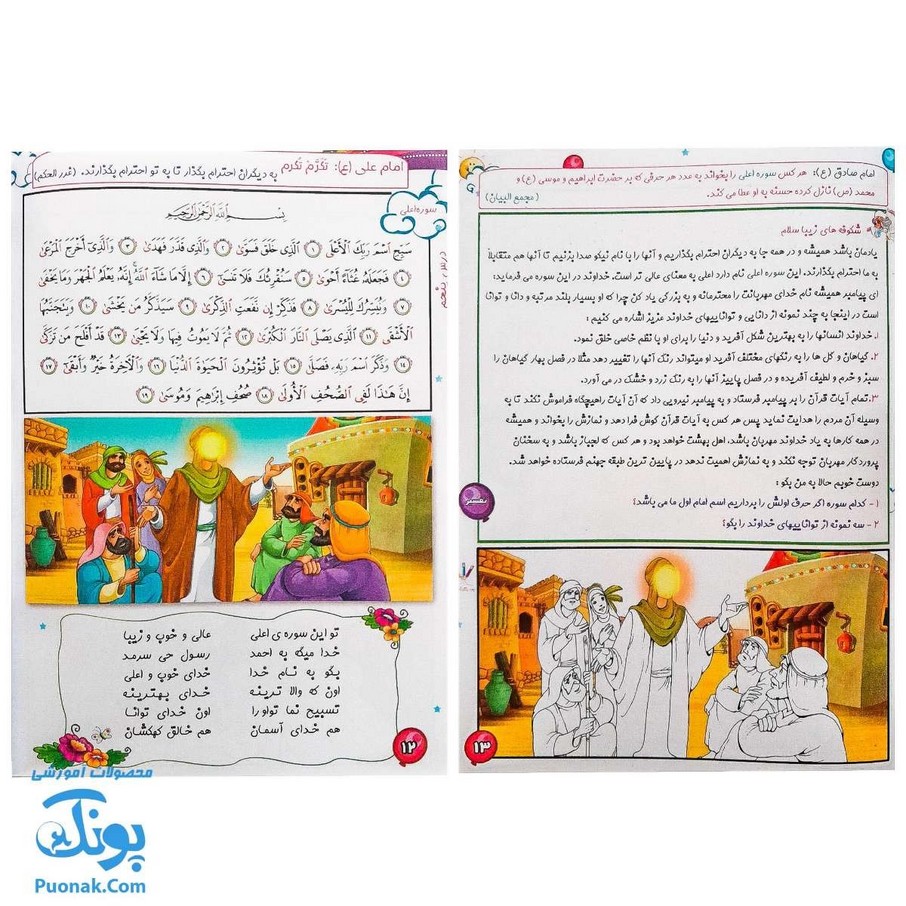 امام علی (ع): تَکَرَّمْ تُکْرَم به دیگران احترام بگذار تا به تو احترام بگذارند. (غرر الحکم)
سوره اعلی
درس پنجم
بِسْمِ اللَّهِ الرَّحْمَنِ الرَّحِيمِ
سَبِّحِ اسْمَ رَبِّكَ الْأَعْلَى ۱ الَّذِي خَلَقَ فَسَوَّى ۲ وَالَّذِي قَدَّرَ فَهَدَى ۳ وَالَّذِي أَخْرَجَ الْمَرْعَى
۴ فَجَعَلَهُ غُثَاءً أَحْوَى ۵ سَنُقْرِئُكَ فَلَا تَنْسَى ۶ إِلَّا مَا شَاءَ اللَّهُ إِنَّهُ يَعْلَمُ الْجَهْرَ وَمَا يَخْفَى
۷ وَنُيَسِّرُكَ لِلْيُسْرَى ۸ فَذَكِّرْ إِنْ نَفَعَتِ الذِّكْرَى ۹ سَيَذَّكَّرُ مَنْ يَخْشَى ۱۰ وَيَتَجَنَّبُهَا
الْأَشْقَى ۱۱ الَّذِي يَصْلَى النَّارَ الْكُبْرَى ۱۲ ثُمَّ لَا يَمُوتُ فِيهَا وَلَا يَحْيَى ۱۳ قَدْ أَفْلَحَ مَنْ تَزَكَّى
۱۴ وَذَكَرَ اسْمَ رَبِّهِ فَصَلَّى ۱۵ بَلْ تُؤْثِرُونَ الْحَيَوةَ الدُّنْيَا ۱۶ وَالْآخِرَةُ خَيْرٌ وَأَبْقَى ۱۷
إِنَّ هَذَا لَفِي الصُّحُفِ الْأُولَى ۱۸ صُحُفِ إِبْرَهِيمَ وَمُوسَى ۱۹
تو این سوره ی اعلی عالی و خوب و زیبا
خدا میگه به احمد رسول حی سرمد
بگو به نام خدا خدای خوب و اعلی
اون که والا ترینه خدای بهترینه
تسبیح نما تو او را اون خدای توانا
هم خدای آسمان هم خالق کهکشان
۱۲
امام صادق (ع): هر کس سوره اعلی را بخواند به عدد هر حرفی که بر حضرت ابراهیم و موسی (ع) و
محمد (ص) نازل کرده حسنه به او عطا می کند. (مجمع البیان)
شکوفه های زیبا سلام
یادمان باشد همیشه و در همه جا به دیگران احترام بگذاریم و آنها را با نام نیکو صدا بزنیم تا آنها هم متقابلاً
به ما احترام بگذارند. این سوره اعلی نام دارد اعلی به معنای عالی تر است. خداوند در این سوره می فرماید:
ای پیامبر همیشه نام خدای مهربانت را محترمانه و به بزرگی یاد کن چرا که او بسیار بلند مرتبه و دانا و توانا
است در اینجا به چند نمونه از دانایی و تواناییهای خداوند عزیز اشاره می کنیم :
۱. خداوند انسانها را به بهترین شکل آفرید و دنیا را برای او با نظم خاصی خلق نمود.
۲. گیاهان و گل ها را به رنگهای مختلف آفرید او میتواند رنگ آنها را تغییر دهد مثلا در فصل بهار گیاهان را
سبز و خرم و لطیف آفریده و در فصل پاییز آنها را به رنگ زرد و خشک در می آورد.
۳. تمام آیات قرآن را بر پیامبر فرستاد و به پیامبر نیرویی داد که آن آیات را هیچگاه فراموش نکند تا به
وسیله آن مردم را هدایت نماید پس هر کس به آیات قرآن گوش فرا دهد و نمازش را بخواند و همیشه
در همه کارها به یاد خداوند مهربان باشد، اهل بهشت خواهد بود و هر کس که لجباز باشد و به سخنان
پروردگار مهربان توجه نکند و به نمازش اهمیت ندهد در پایین ترین طبقه جهنم فرستاده خواهد شد.
دوست خوبم حالا به من بگو :
۱- کدام سوره اگر حرف اولش را برداریم اسم امام اول ما می باشد؟
۲- سه نمونه از تواناییهای خداوند را بگو؟
تفسیر
۱۳
محصولات آموزشی
پونک
Puonak.Com